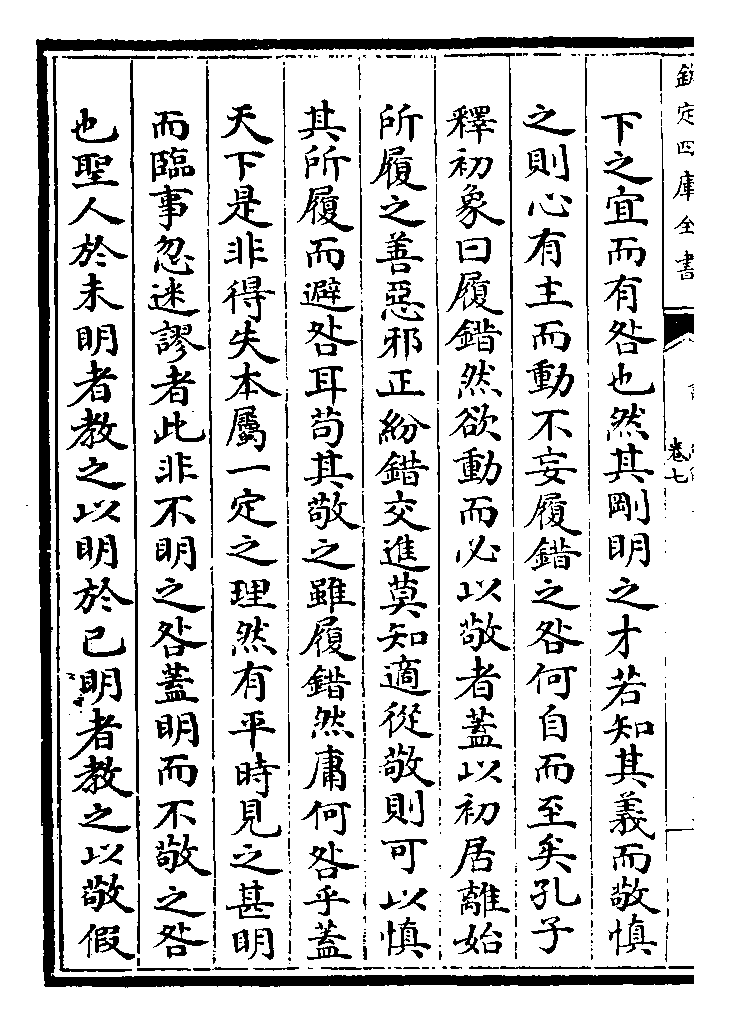 欽定四庫全書
卷七
下之宜而有咎也然其剛明之才若知其義而敬慎
之則心有主而動不妄履錯之咎何自而至矣孔子
釋初象曰履錯然欲動而必以敬者蓋以初居離始
所履之善惡邪正紛錯交進莫知適從敬則可以慎
其所履而避咎耳苟其敬之雖履錯然庸何咎乎蓋
天下是非得失本屬一定之理然有平時見之甚明
而臨事忽迷謬者此非不明之咎蓋明而不敬之咎
也聖人於未明者教之以明於已明者教之以敬假